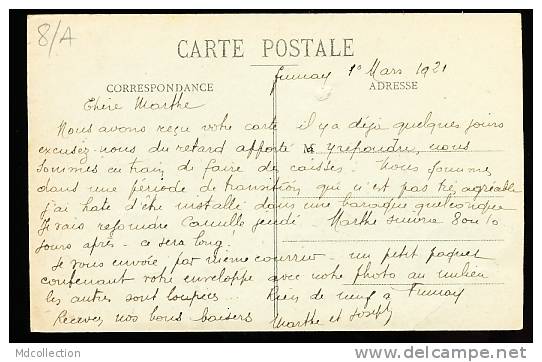 8/A
CARTE POSTALE
Fumay 1º Mars 1921
CORRESPONDANCE
ADRESSE
Chère Marthe
Nous avons reçu votre carte il y a déjà quelques jours
excusez-nous du retard apporté à y répondre, nous
sommes en train de faire des caisses. Nous sommes
dans une période de transition qui n'est pas très agréable
j'ai hate d'être installé dans une baraque quelconque
Je vais rejoindre Camille jeudi Marthe suivra 8 ou 10
jours après - ce sera long.
Je vous envoie par même courrier un petit paquet
contenant votre enveloppe avec notre photo au milieu
les autres sont loupées... Rien de neuf à Fumay
Recevez nos bons baisers Marthe et Joseph
Mdcollection
www.delcampe.net